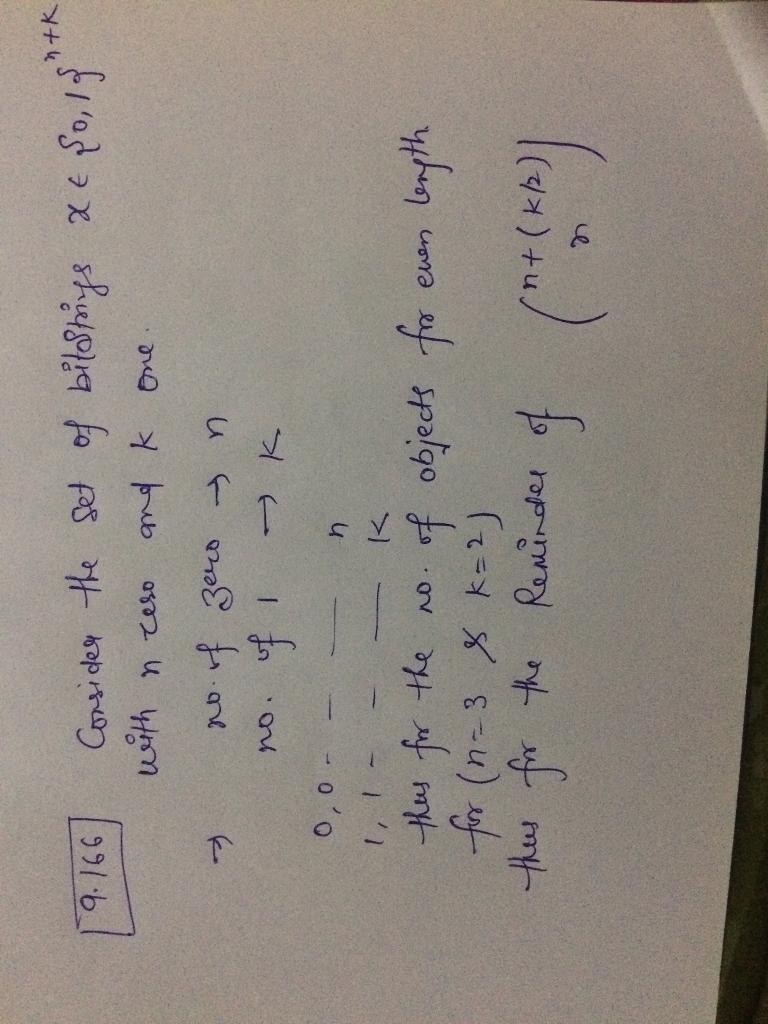 9.166 Consider the set of bitstrings x ∈ {0,1}^n+k
with n zero and k one.
→ no. of zero → n
no. of 1 → K
0, 0 - - — n
1, 1 - - — K
thus for the no. of objects for even length
for (n=3 & k=2)
thus for the Reminder of (n+(k/2) n)